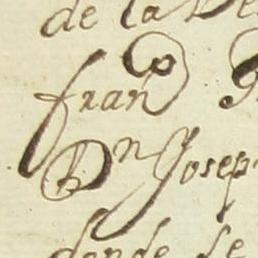 de la De
fran^co
Dn Josep
donde se